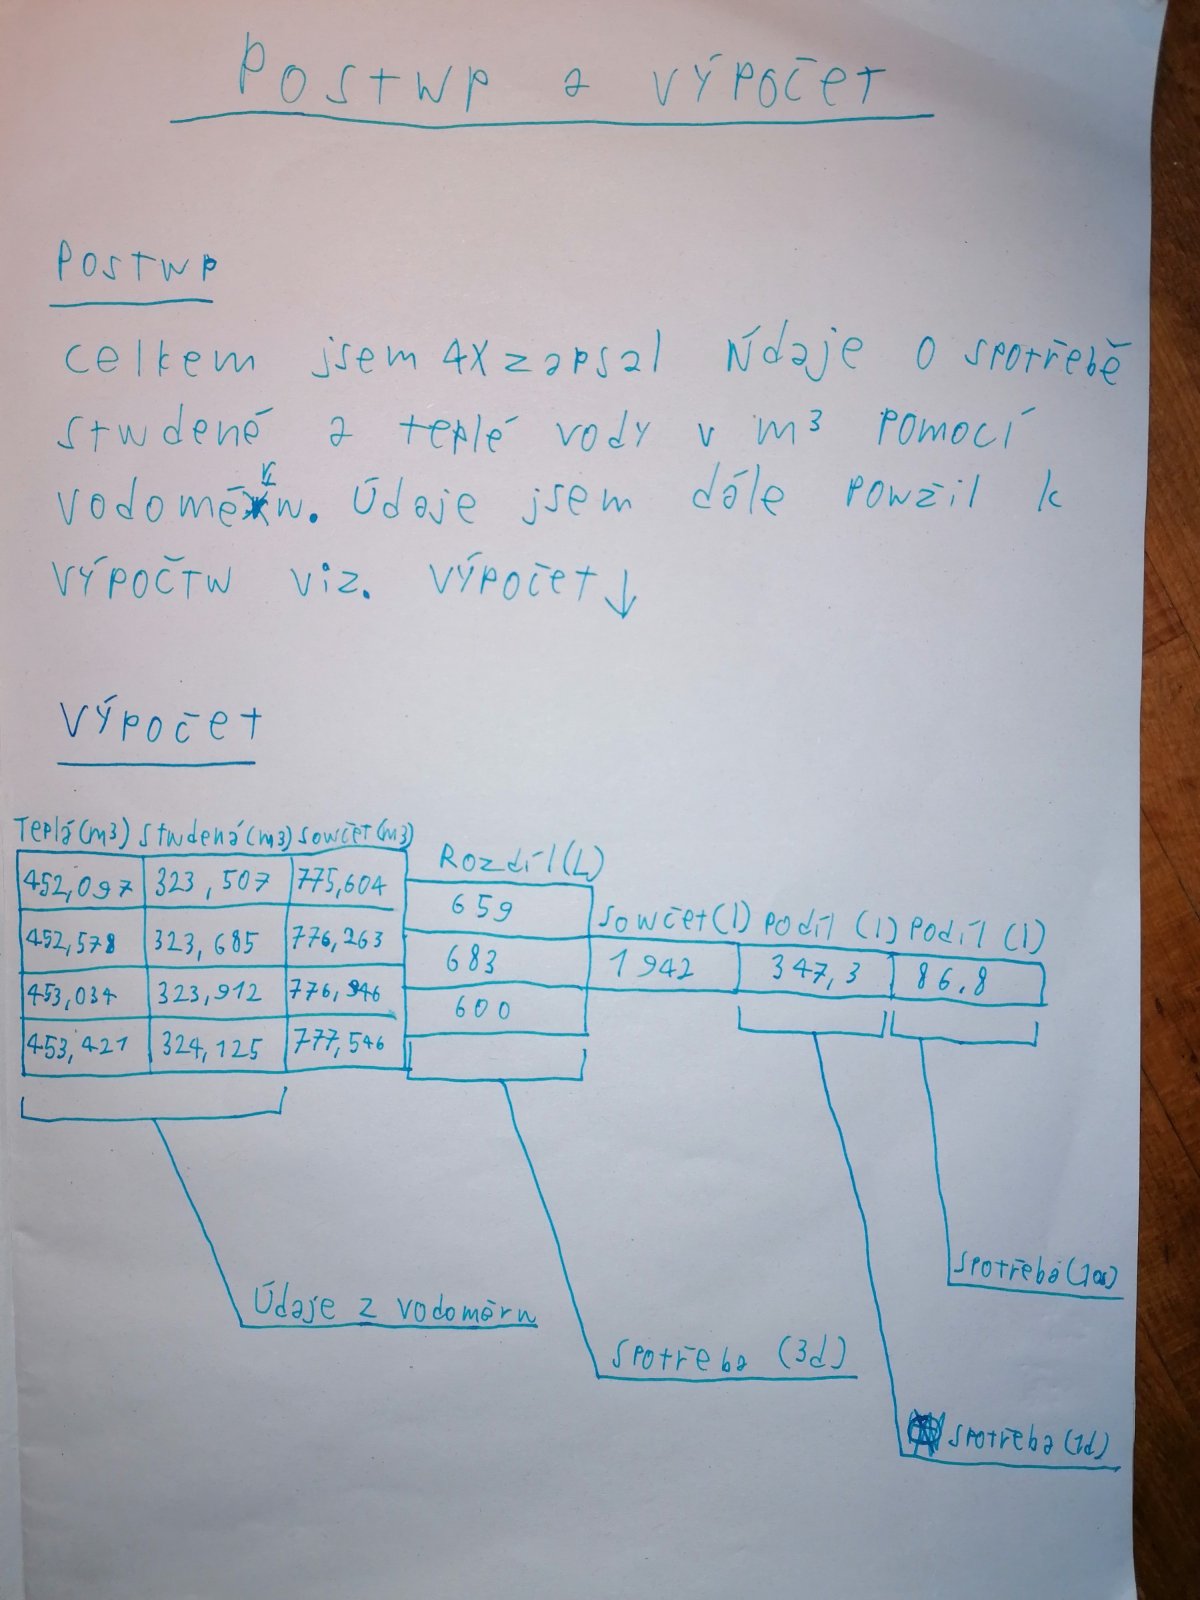 Postup a výpočet
Postup
Celkem jsem 4x zapsal Údaje o spotřebě
studené a teplé vody v m³ pomocí
vodoměru. Údaje jsem dále použil k
výpočtu viz. výpočet ↓
Výpočet
Teplá (m3) Studená (m3) Součet (m3) Rozdíl (L) Součet (l) Podíl (l) Podíl (l)
452,097 323,507 775,604 659
452,578 323,685 776,263 683 1942 347,3 86,8
453,034 323,912 776,946 600
453,421 324,125 777,546
Údaje z vodoměru
Spotřeba (3d)
Spotřeba (1os)
Spotřeba (1d)